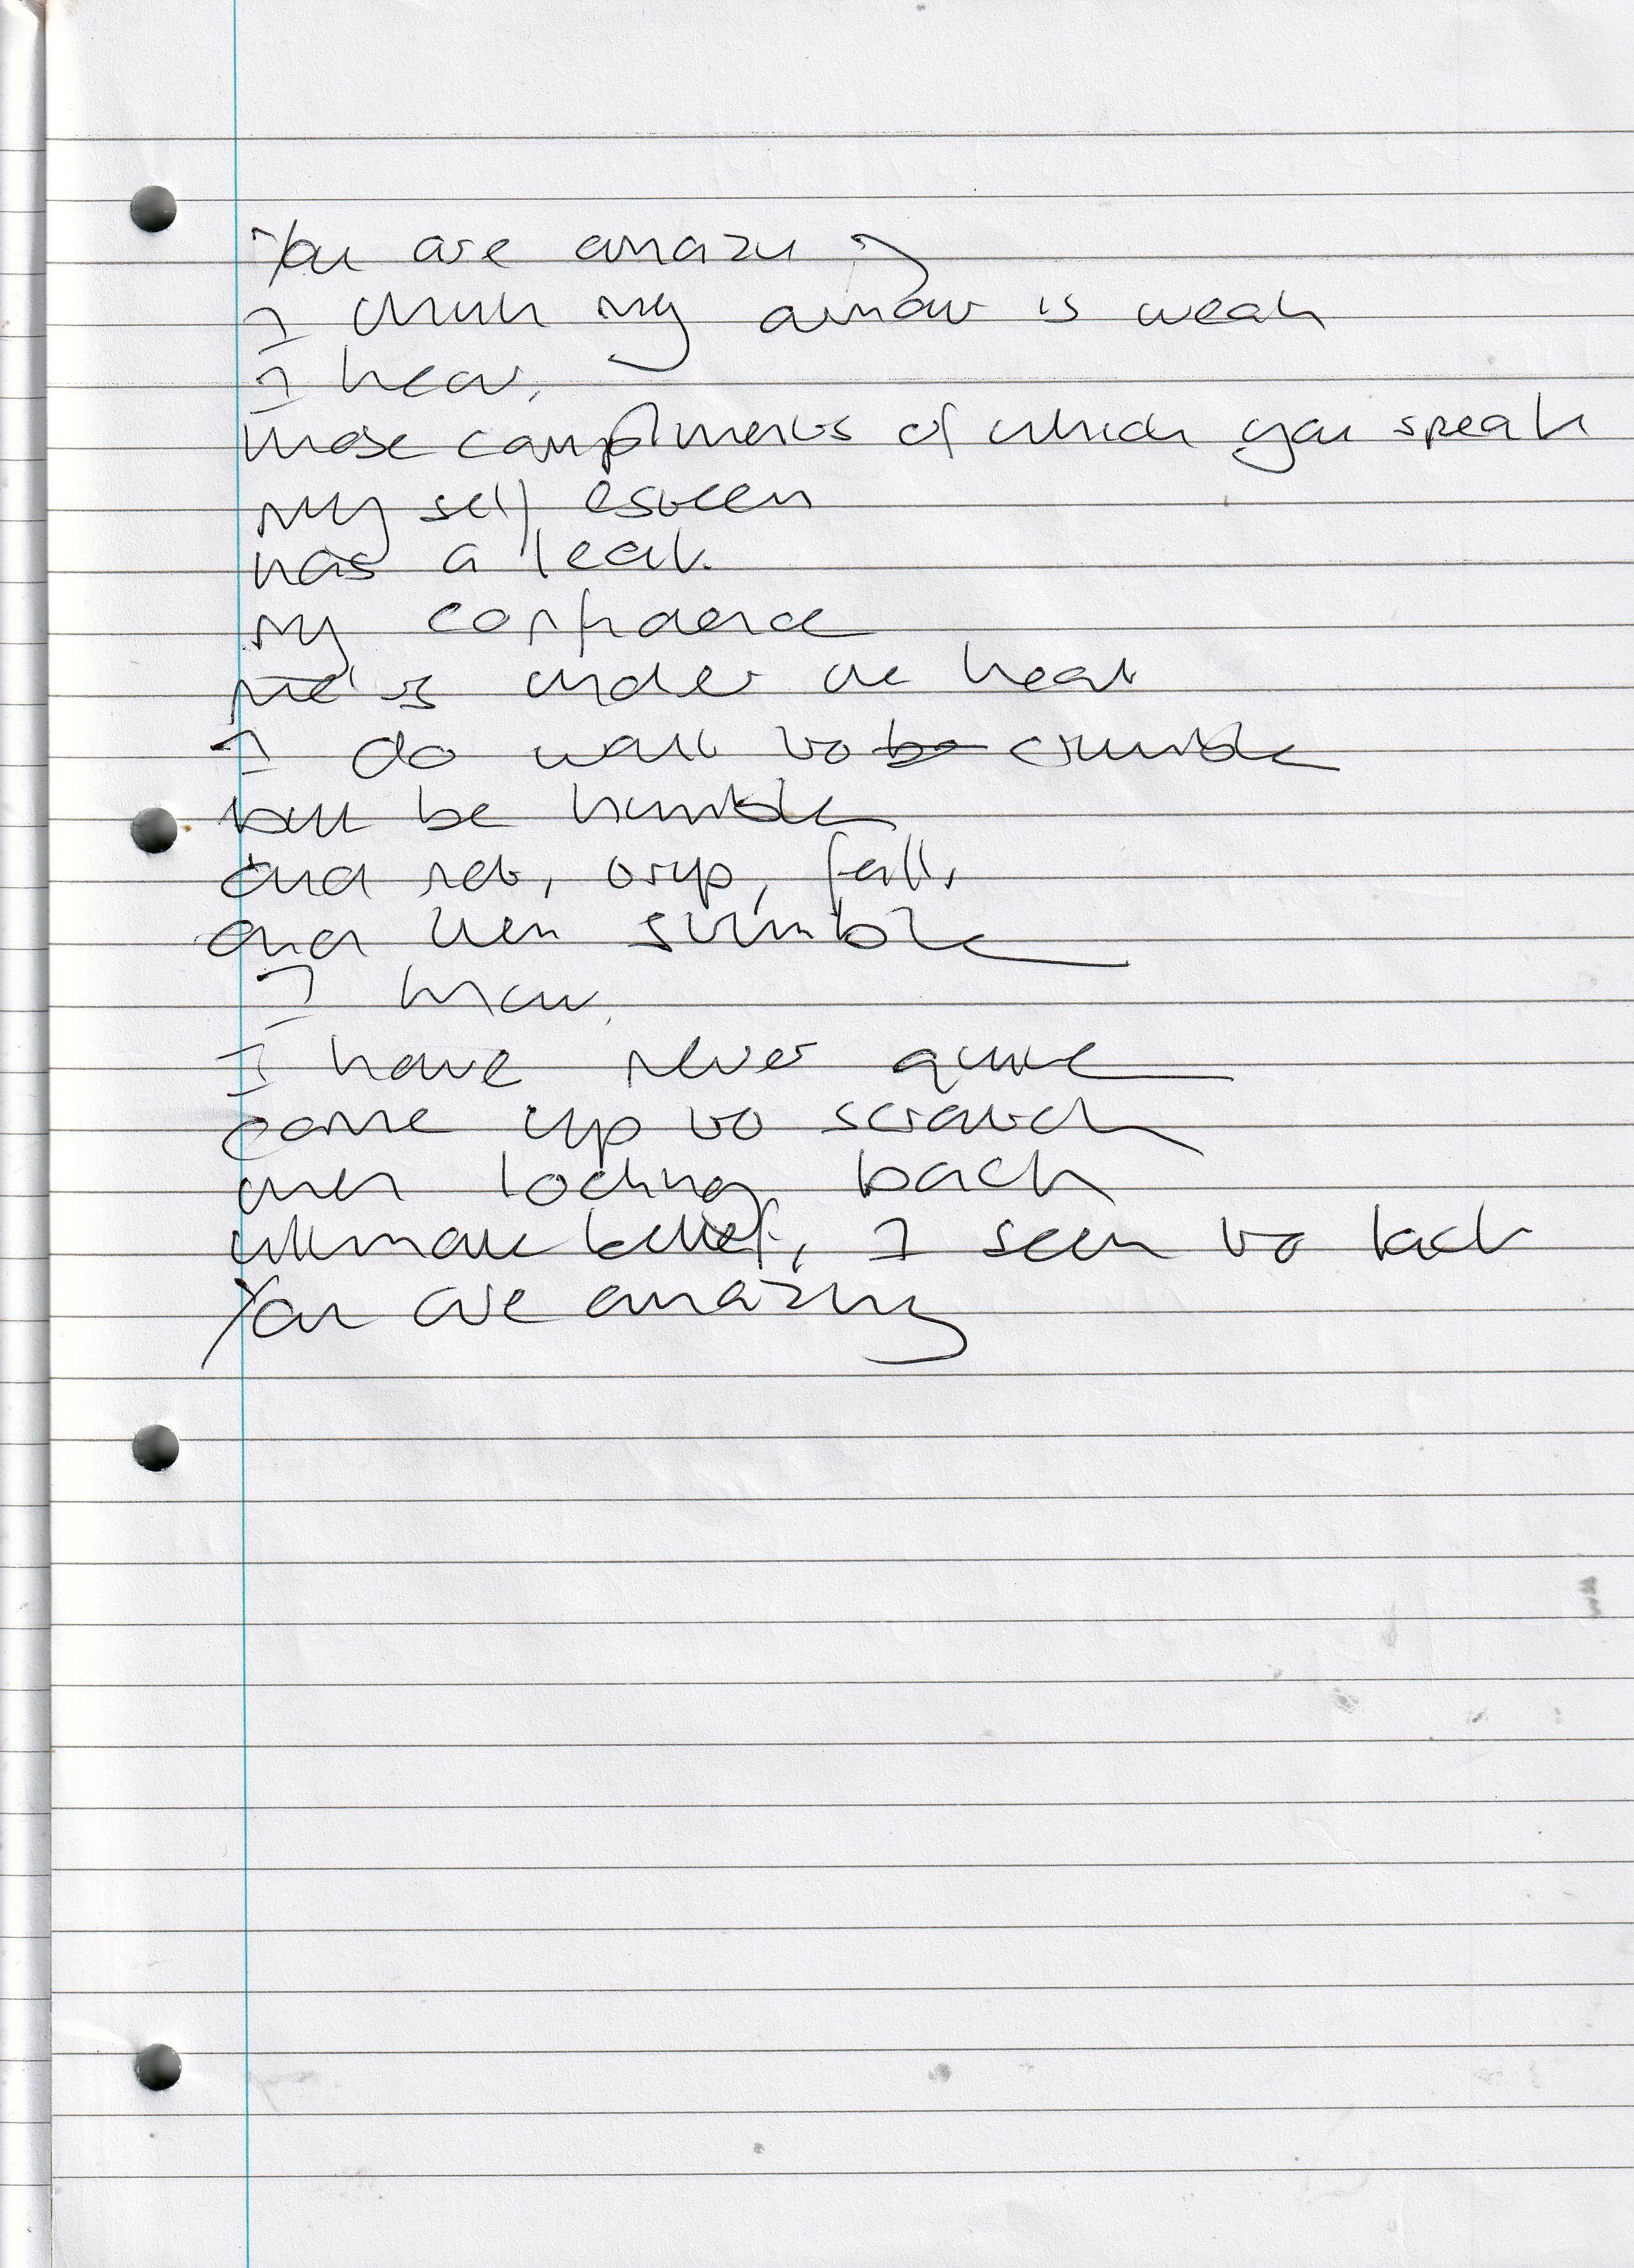 You are amazing
I think my armour is weak
I hear,
those compliments of which you speak
my self esteem
has a leak
my confidence
is under the heat
I do want to be crumble
but be humble
and not, trip, fall,
and then stumble
I know,
I have never quite
come up to scratch
when looking back
ultimate belief, I seem to lack
You are amazing